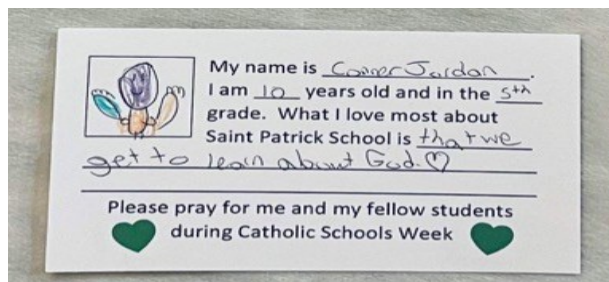 My name is Conner Jordan.
I am 10 years old and in the 5th
grade. What I love most about
Saint Patrick School is that we
get to learn about God. ♡
Please pray for me and my fellow students
during Catholic Schools Week